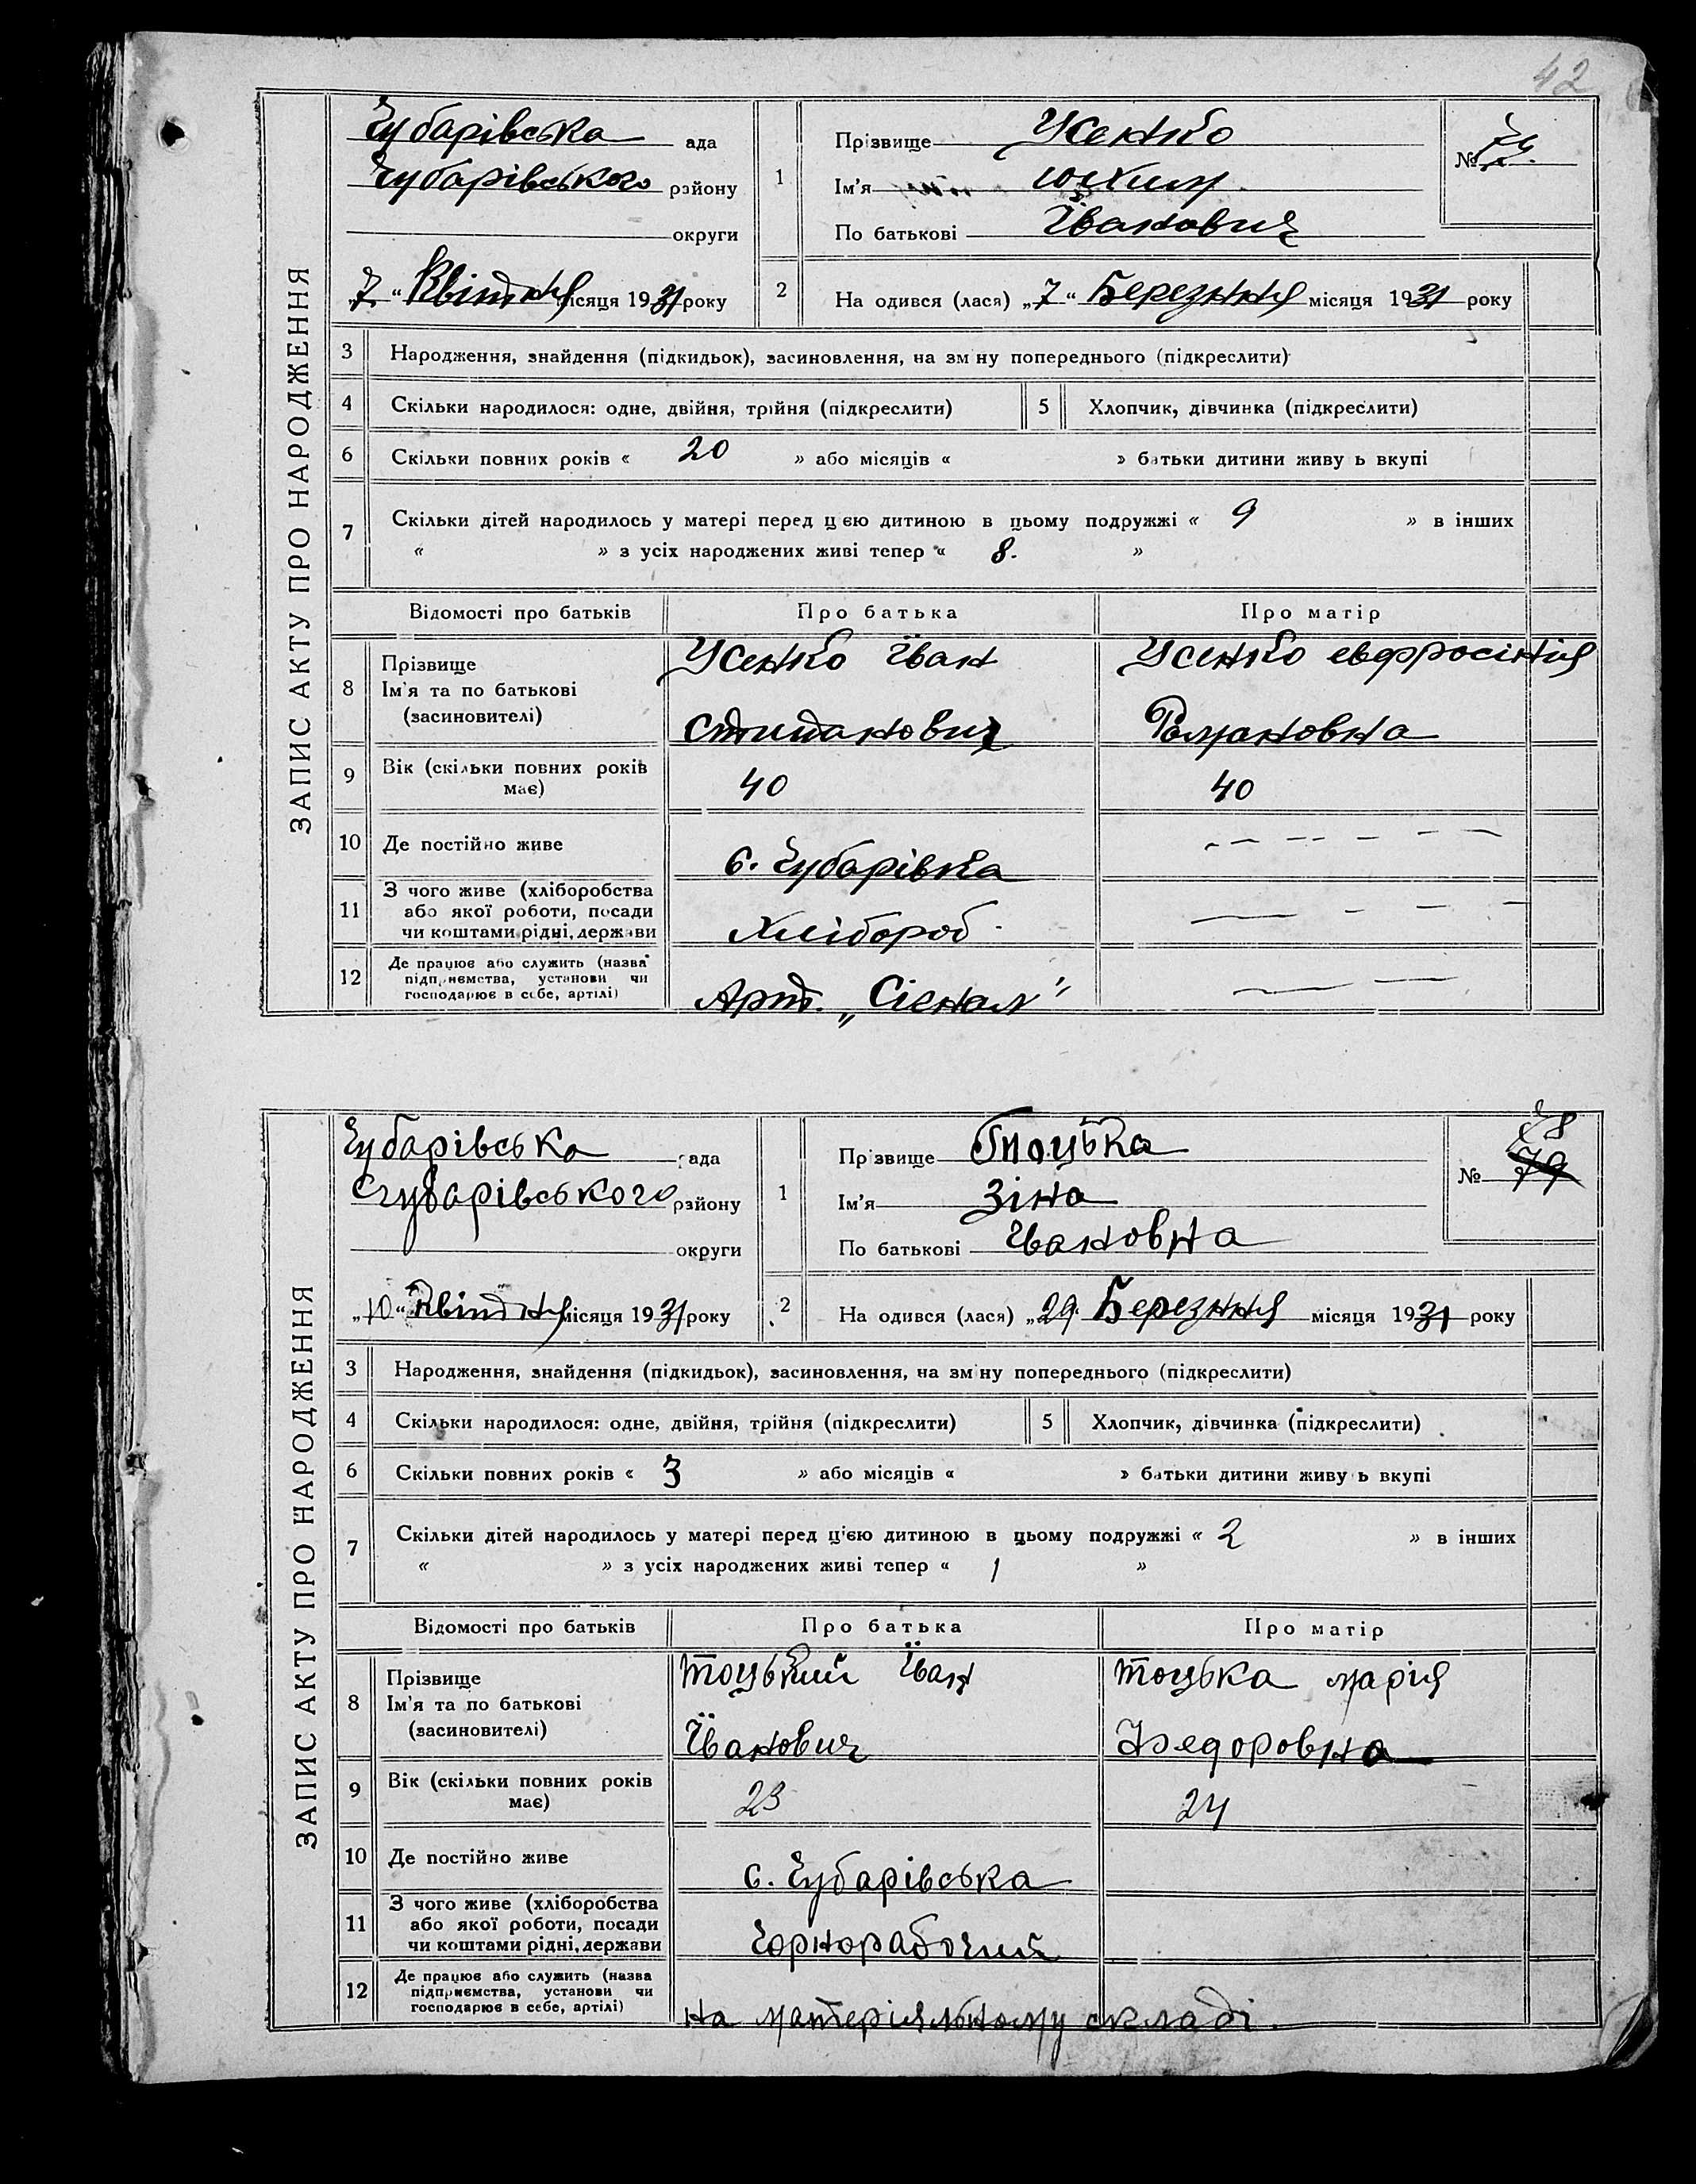 42
ЗАПИС АКТУ ПРО НАРОДЖЕННЯ
Чубарівська ада
Чубарівського району
округи
„7“ Квітня місяця 1931 року
1
Прізвище Усенко
Ім'я Юхим
По батькові Іванович
№
2 На одився (лася) „7“ Березння місяця 1931 року
3 Народження, знайдення (підкидьок), засиновлення, на зм ну попереднього (підкреслити)
4 Скільки народилося: одне, двійня, трійня (підкреслити) 5 Хлопчик, дівчинка (підкреслити)
6 Скільки повних років « 20 » або місяців « » батьки дитини живу ь вкупі
7 Скільки дітей народилось у матері перед цією дитиною в цьому подружжі « 9 » в інших
« » з усіх народжених живі тепер « 8. »
Відомості про батьків Про батька Про матір
8 Прізвище Усенко Їван Усенко евфросінія
Ім'я та по батькові
(засиновителі) Стипанович Романовна
9 Вік (скільки повних років має) 40 40
10 Де постійно живе с. Чубарівка
11 З чого живе (хліборобства
або якої роботи, посади
чи коштами рідні, держави Хлібороб
12 Де працює або служить (назва
підприємства, установи чи
господарює в себе, артілі) Арт. „Сієнал"
ЗАПИС АКТУ ПРО НАРОДЖЕННЯ
Чубарівська ада
Чубарівського району
округи
„10“ Квітня місяця 1931 року
1
Прізвище Тоцька
Ім'я Зіна
По батькові Івановна
№ 78
79
2 На одився (лася) „29 Березння місяця 1931 року
3 Народження, знайдення (підкидьок), засиновлення, на зм ну попереднього (підкреслити)
4 Скільки народилося: одне, двійня, трійня (підкреслити) 5 Хлопчик, дівчинка (підкреслити)
6 Скільки повних років « 3 » або місяців « » батьки дитини живу ь вкупі
7 Скільки дітей народилось у матері перед цією дитиною в цьому подружжі « 2 » в інших
« » з усіх народжених живі тепер « 1 »
Відомості про батьків Про батька Про матір
8 Прізвище Тоцький Їван Тоцька марія
Ім'я та по батькові
(засиновителі) Їванович Федоровна
9 Вік (скільки повних років має) 23 24
10 Де постійно живе с. Чубарівська
11 З чого живе (хліборобства
або якої роботи, посади
чи коштами рідні, держави Чорнорабочий
12 Де працює або служить (назва
підприємства, установи чи
господарює в себе, артілі) на матеріяльному складі.